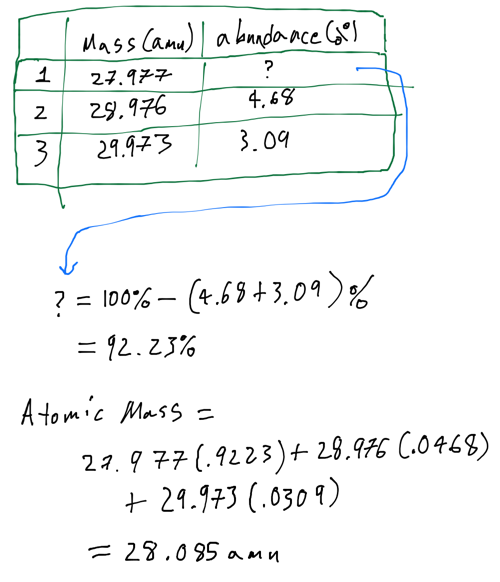 Mass (amu) abundance (%)
1 27.977 ?
2 28.976 4.68
3 29.973 3.09
? = 100% - (4.68 + 3.09)%
= 92.23%
Atomic Mass =
27.977 (.9223) + 28.976 (.0468)
+ 29.973 (.0309)
= 28.085 amu